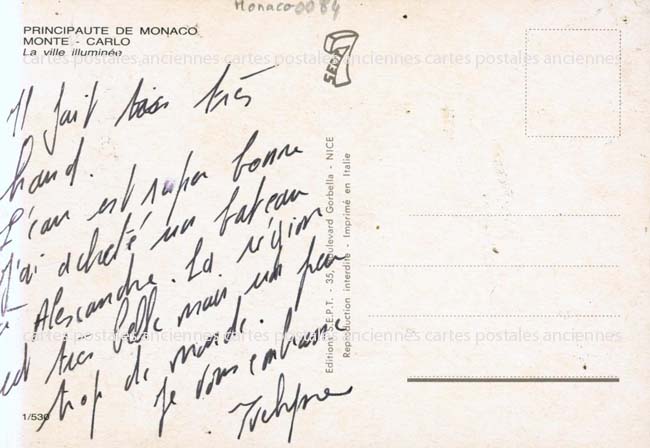 Monaco 0084
PRINCIPAUTE DE MONACO
MONTE - CARLO
La ville illuminée
cartes postales anciennes cartes postales anciennes cartes postales anciennes
SEPT
7
Il fait très
haud.
L'eau est super bonne
J'ai acheté un bateau
Alessandre. La région
est très belle mais un peu
trop de monde.
Je vous embrasse
Editions S.E.P.T. - 35, boulevard Gorbella - NICE
Reproduction interdite - Imprimé en Italie
cartes postales anciennes cartes postales anciennes cartes postales anciennes
1/530